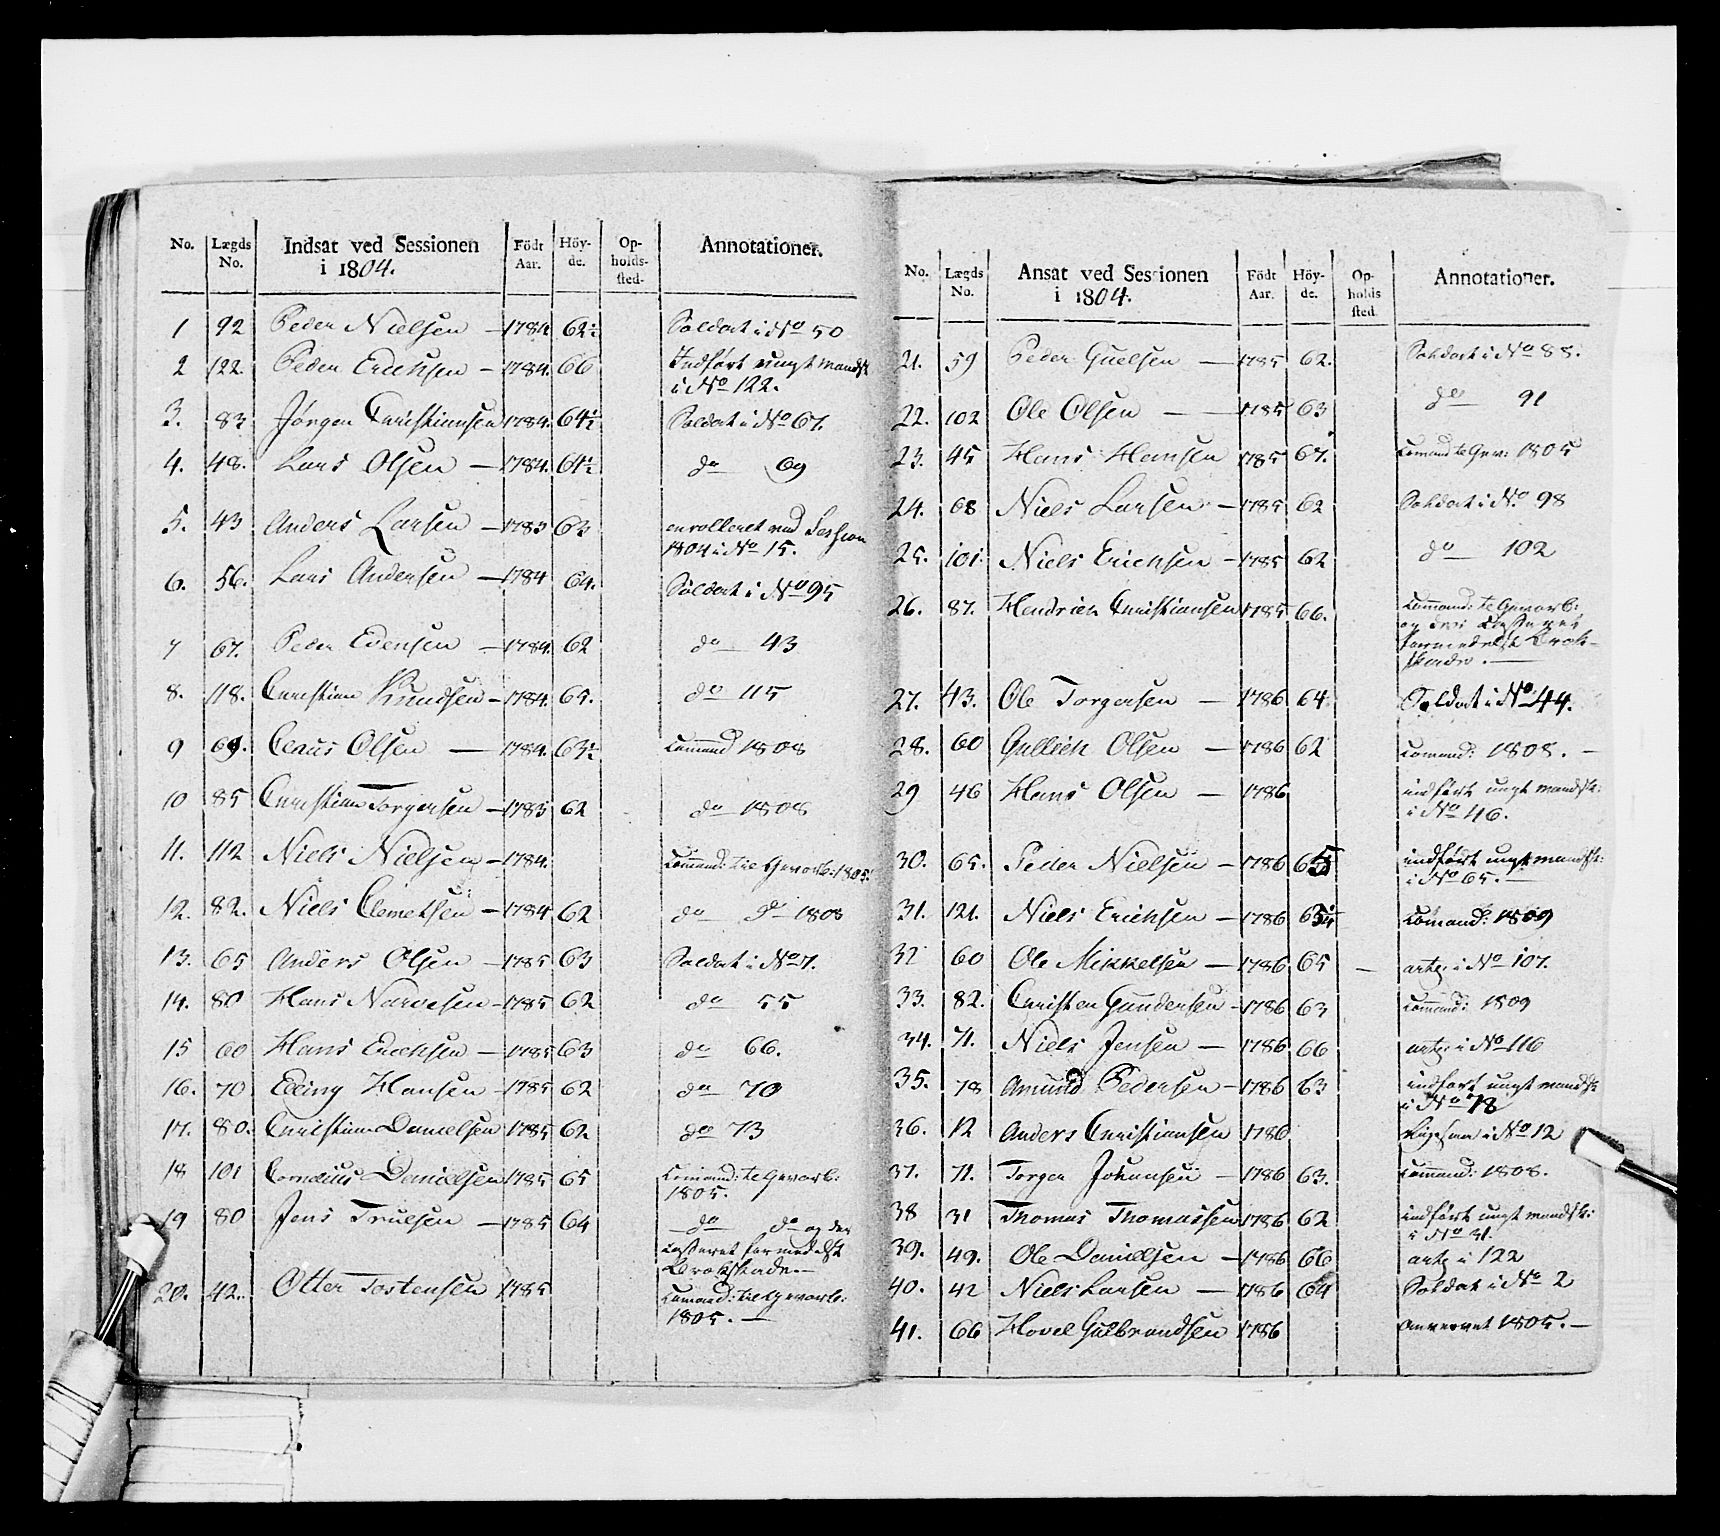 No. Lægds No. Indsat ved Sessionen i 1804. Födt Aar. Höy-de. Op-holds-sted. Annotationer.
1 92 Peder Nielsen — 1784 62½ Soldat i No 50
2 122. Peder Erichsen — 1784. 66 Indført ungt Mandsk
i No 122.
3. 83 Jørgen Christiansen 1784. 64½ Soldat i No 67.
4. 48. Lars Olsen — 1784. 64½ do 69
5. 43 Anders Larsen — 1783 63 enrolleret ved Session
1804 i No 15.
6. 56. Lars Andersen — 1784 64. Soldat i No 95
7 67. Peder Edensen — 1784. 62 do 43
8. 118. Christian Knudsen — 1784. 65. do 115
9 69. Claus Olsen — 1784. 63½ Command 1808
10 85 Christian Torgersen — 1783 62 do 1808
11. 112 Niels Nielsen — 1784. Command: til Gevorb: 1805.
12. 82. Niels Clemetsen — 1784 62 do do 1808
13. 65 Anders Olsen — 1785 63 Soldat i No 7.
14. 80 Hans Narvesen — 1785 62 do 55
15 60 Hans Erichsen — 1785 63 do 66.
16. 70 Elling Hansen — 1785 62 do 70
17. 80. Christian Danielsen 1785 62 do 73
18 101 Cornelius Danielsen 1785 65 Command: til Gevorb:
1805.
19 80 Jens Truelsen — 1785 64 do do og der
Casseret formedelst
Brokskade. —
20. 42. Otter Tostensen 1785 Command: til Gevorb:
1805. —
No. Lægds No. Ansat ved Sessionen i 1804. Födt Aar. Höy-de. Op-holds sted. Annotationer.
21. 59 Peder Guelsen — 1785 62. Soldat i No 88.
22. 102 Ole Olsen — 1785 63 do 91
23. 45 Hans Hansen 1785 67. Comand til Gev: 1805
24. 68 Niels Larsen — 1785 62 Soldat i No. 98
25. 101. Niels Erichsen — 1785 62 do 102
26. 87. Hendrich Christiansen 1785 66. Command: til Gevorb:
og der Casseret
formedelst Brok-
skade. —
27. 43. Ole Torgersen — 1786 64 Soldat i No 44.
28. 60 Gullich Olsen — 1786 62 Comand: 1808. —
29 46 Hans Olsen — 1786 indført ungt mandsk:
i No 46.
30. 65. Peder Nielsen — 1786 65 indført ungt mandsk:
i No 65. —
31. 121. Niels Erichsen — 1786 Comand: 1809
32 60 Ole Mikkelsen — 1786 65 — artz. i No 107.
33. 82. Christen Gundersen — 1786 63 Command: 1809
34. 71. Niels Jensen — 1786 66 artz i No 116
35. 78 Amund Pedersen — 1786 63 indført ungt mandsk
i No 78
36. 12 Anders Christiansen 1786 i No 12
37. 71. Torger Johansen — 1786 63. Command: 1808.
38 31 Thomas Thomassen 1786 62 indført ungt mandsk:
i No 31.
39. 49. Ole Danielsen — 1786 66 artz i 122
40. 42 Niels Larsen — 1786 64 Soldat i No 2
41. 66 Hovel Gulbrandsen 1786 1805. —